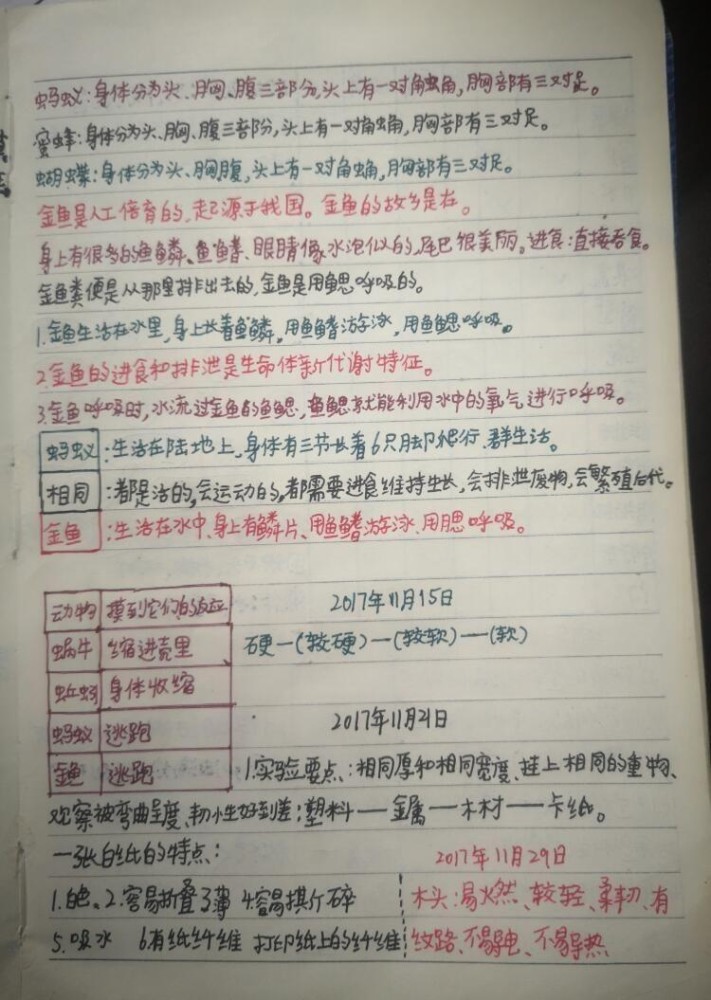 蚂蚁:身体分为头、胸、腹三部分,头上有一对触角,胸部有三对足。
蜜蜂:身体分为头、胸、腹三部分,头上有一对触角,胸部有三对足。
蝴蝶:身体分为头、胸腹,头上有一对触角,胸部有三对足。
金鱼是人工培育的,起源于我国。金鱼的故乡是在。
身上有很多的鱼鳞、鱼鳍、眼睛像水泡似的,尾巴很美丽。进食:直接吞食。
金鱼粪便是从那里排出去的,金鱼是用鱼鳃呼吸的。
1.金鱼生活在水里,身上长着鱼鳞,用鱼鳍游泳,用鱼鳃呼吸。
2.金鱼的进食和排泄是生命体新代谢特征。
3.金鱼呼吸时,水流过金鱼的鱼鳃,鱼鳃就能利用水中的氧气进行呼吸。
蚂蚁:生活在陆地上,身体有三节长着6只脚爬行、群生活。
相同:都是活的,会运动的,都需要进食维持生长,会排泄废物,会繁殖后代。
金鱼:生活在水中、身上有鳞片、用鱼鳍游泳、用腮呼吸。
动物 摸到它们的反应 2017年11月15日
蜗牛 缩进壳里 硬—(较硬)—(较软)—(软)
蚯蚓 身体收缩
蚂蚁 逃跑 2017年11月21日
金鱼 逃跑 1.实验要点:相同厚和相同宽度、挂上相同的重物、
观察被弯曲呈度、韧性好到差;塑料——金属——木材——卡纸。
一张白纸的特点: 2017年11月29日
1.白色。2.容易折叠 3薄 4.容易撕碎 木头:易火然、较轻、柔韧、有
5.吸水 6.有纸纤维 打印纸上的纤维 纹路、不易导电、不易导热